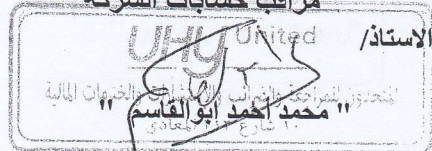 مراقب حسابات الشركة
الاستاذ/
UHY United
المتحدون للمراجعة والضرائب والاستشارات والخدمات المالية
" محمد احمد ابوالقاسم "
المعادي